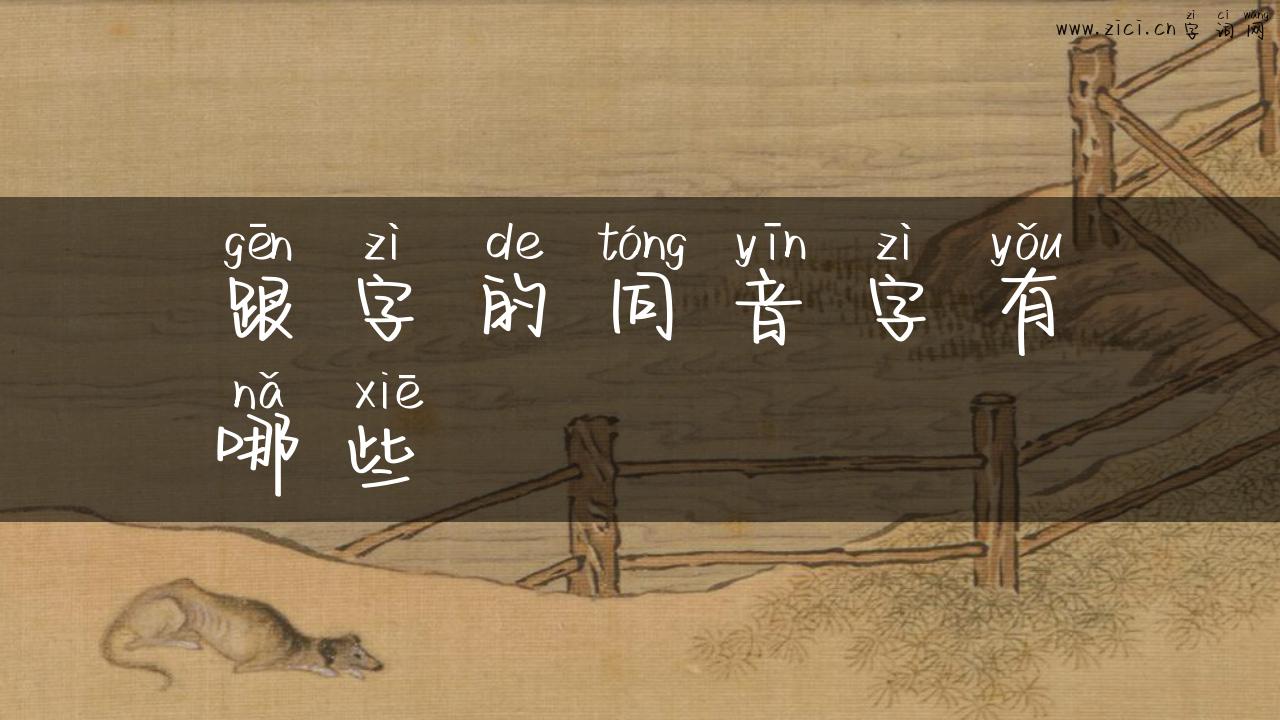 zì cí wǎng
www.zici.cn 字词网
gēn zì de tóng yīn zì yǒu
跟字的同音字有
nǎ xiē
哪些